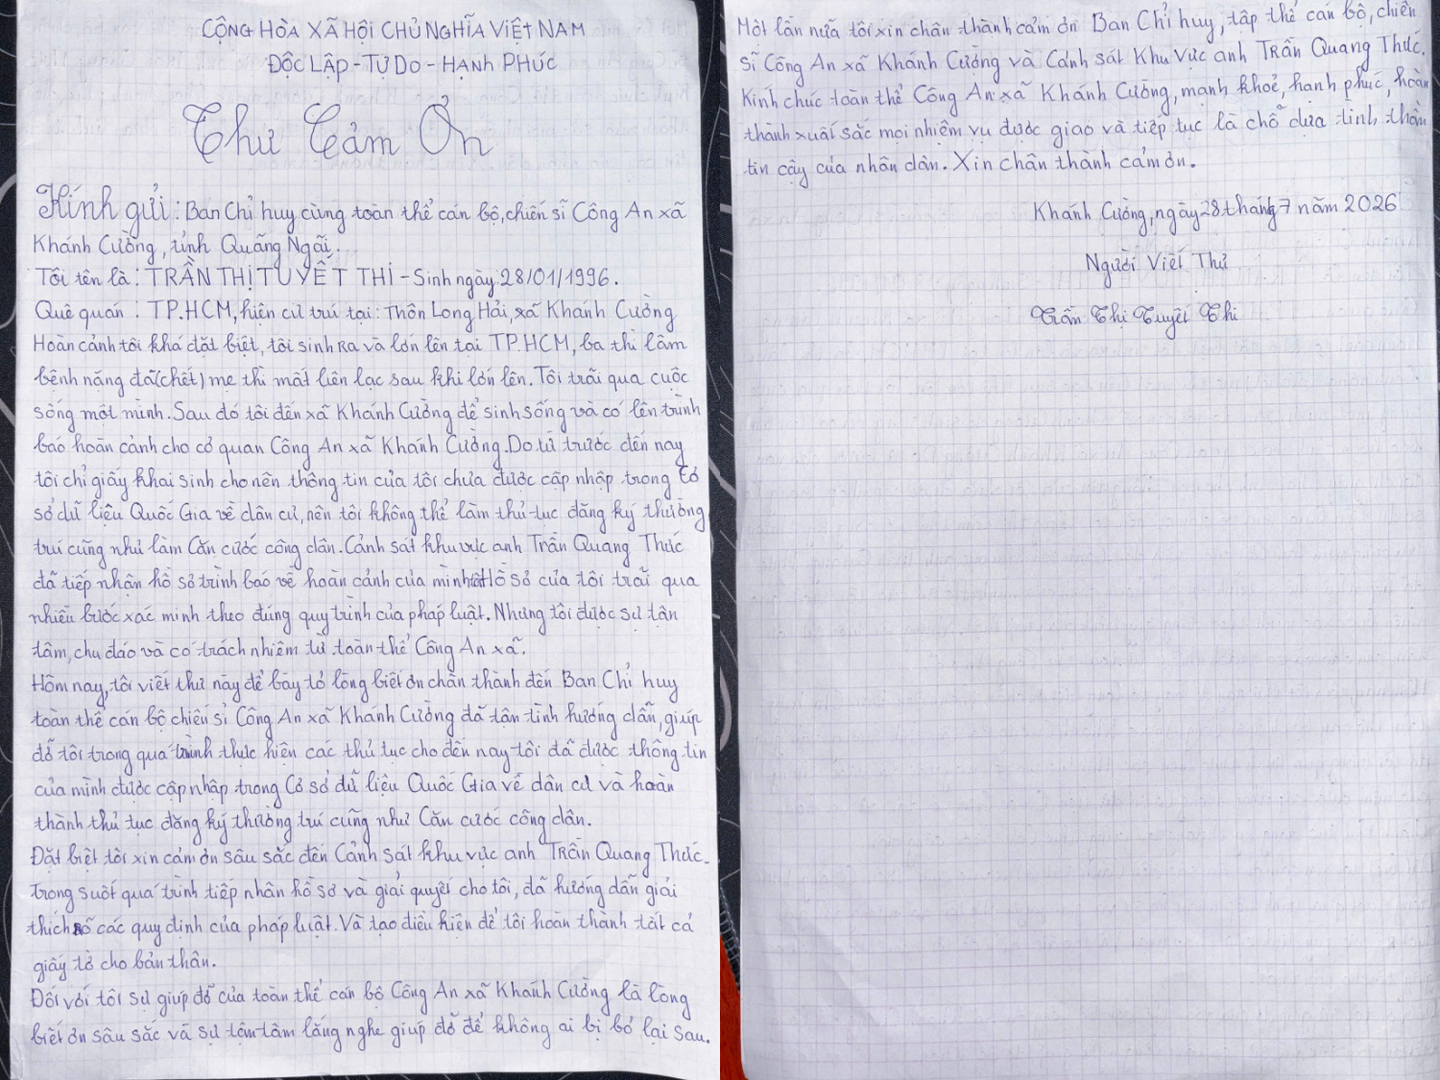 CỘNG HÒA XÃ HỘI CHỦ NGHĨA VIỆT NAM
ĐỘC LẬP - TỰ DO - HẠNH PHÚC
Thư Cảm Ơn
Kính gửi: Ban Chỉ huy cùng toàn thể cán bộ, chiến sĩ Công An xã
Khánh Cường, tỉnh Quảng Ngãi.
Tôi tên là: TRẦN THỊ TUYẾT THI - Sinh ngày 28/01/1996.
Quê quán: TP.HCM, hiện cư trú tại: Thôn Long Hải, xã Khánh Cường
Hoàn cảnh tôi khá đặt biệt, tôi sinh ra và lớn lên tại TP.HCM, ba thì lâm
bệnh nặng đã (chết) mẹ thì mất liên lạc sau khi lớn lên. Tôi trãi qua cuộc
sống một mình. Sau đó tôi đến xã Khánh Cường để sinh sống và có lên trình
báo hoàn cảnh cho cơ quan Công An xã Khánh Cường. Do từ trước đến nay
tôi chỉ giấy khai sinh cho nên thông tin của tôi chưa được cập nhập trong Cơ
sở dữ liệu Quốc Gia về dân cư, nên tôi không thể làm thủ tục đăng ký thường
trú cũng như làm Căn cước công dân. Cảnh sát khu vực anh Trần Quang Thức
đã tiếp nhận hồ sơ trình báo về hoàn cảnh của mình. Hồ sơ của tôi trãi qua
nhiều bước xác minh theo đúng quy trình của pháp luật. Nhưng tôi được sự tận
tâm, chu đáo và có trách nhiệm từ toàn thể Công An xã.
Hôm nay, tôi viết thư này để bày tỏ lòng biết ơn chân thành đến Ban Chỉ huy
toàn thể cán bộ chiến sĩ Công An xã Khánh Cường đã tận tình hướng dẫn, giúp
đỡ tôi trong quá trình thực hiện các thủ tục cho đến nay tôi đã được thông tin
của mình được cập nhập trong Cơ sở dữ liệu Quốc Gia về dân cư và hoàn
thành thủ tục đăng ký thường trú cũng như Căn cước công dân.
Đặt biệt tôi xin cảm ơn sâu sắc đến Cảnh sát khu vực anh Trần Quang Thức
trong suốt quá trình tiếp nhận hồ sơ và giải quyết cho tôi, đã hướng dẫn giải
thích rõ các quy định của pháp luật. Và tạo điều kiện để tôi hoàn thành tất cả
giấy tờ cho bản thân.
Đối với tôi sự giúp đỡ của toàn thể cán bộ Công An xã Khánh Cường là lòng
biết ơn sâu sắc và sự tận tâm lắng nghe giúp đỡ để không ai bị bỏ lại sau.
Một lần nữa tôi xin chân thành cảm ơn Ban Chỉ huy, tập thể cán bộ, chiến
sĩ Công An xã Khánh Cường và Cảnh sát Khu Vực anh Trần Quang Thức.
Kính chúc toàn thể Công An xã Khánh Cường, mạnh khoẻ, hạnh phúc, hoàn
thành xuất sắc mọi nhiệm vụ được giao và tiếp tục là chỗ dựa tinh thần
tin cậy của nhân dân. Xin chân thành cảm ơn.
Khánh Cường, ngày 28 tháng 7 năm 2026
Người Viết Thư
Trần Thị Tuyết Thi